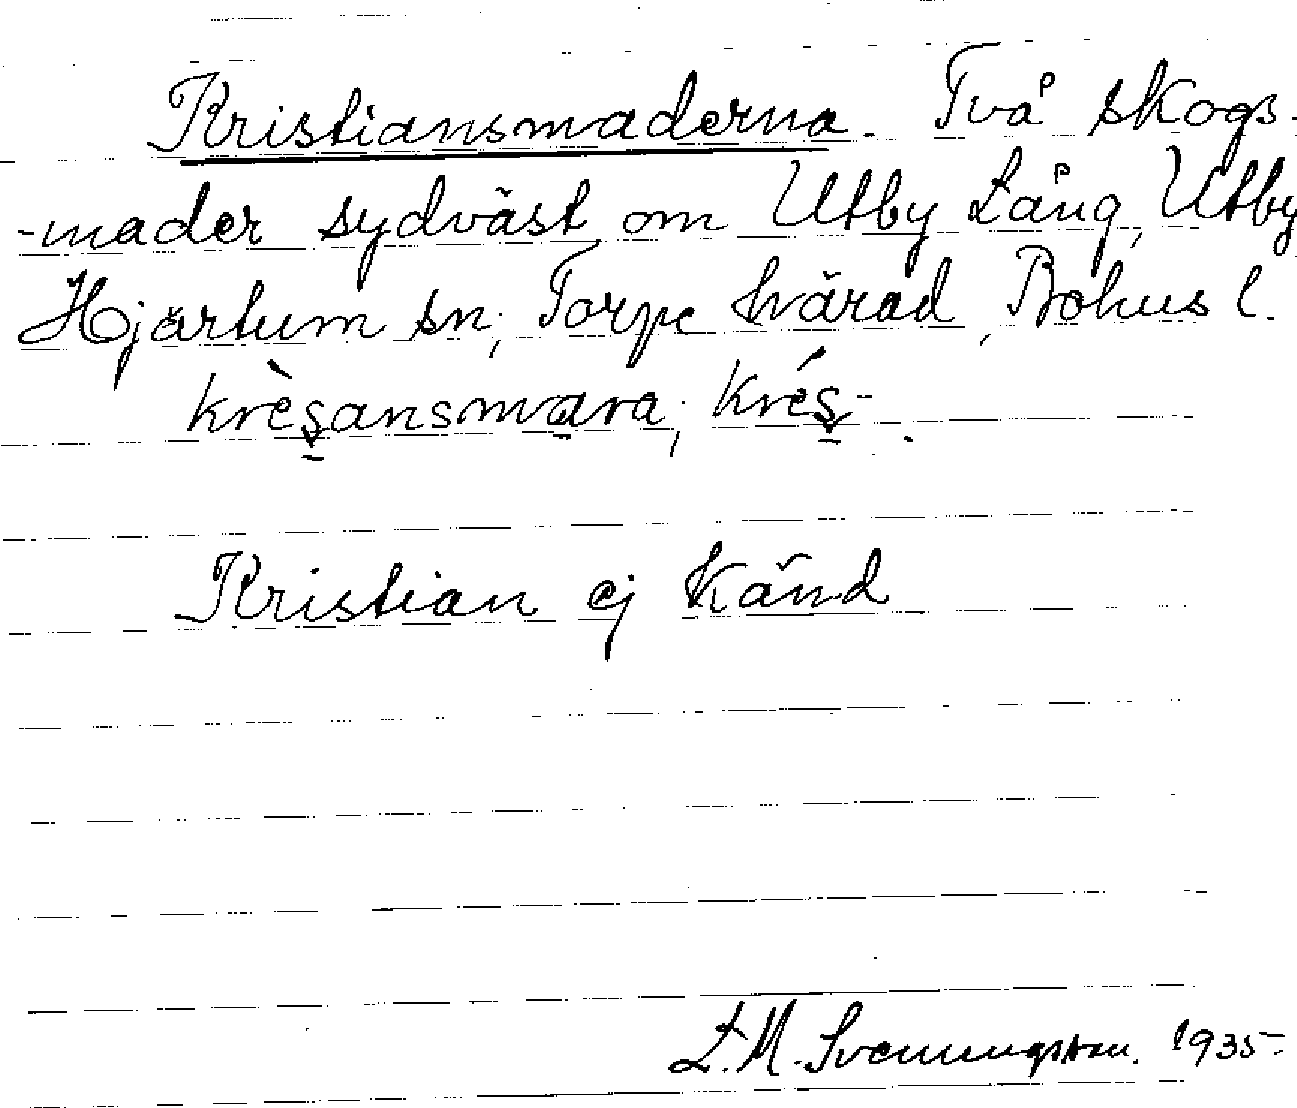 Kristiansmaderna. Två skogs-
-mader sydväst om Utby Lång, Utby
Hjärtum sn, Torpe härad, Bohus l.
krèʂansmara, kréʂ-.
Kristian ej känd
L. M. Svenungsson. 1935-